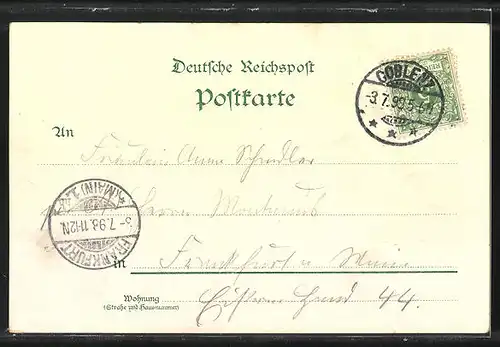 Deutsche Reichspost
Postkarte
COBLENZ
3.7.98.5-6N
An
Fräulein Anna Schindler
(MAIN) 1.
3-7.98.11-12N.
FRANKFURT
Herrn
in Frankfurt a Main
Wohnung
(Straße und Hausnummer)
44.